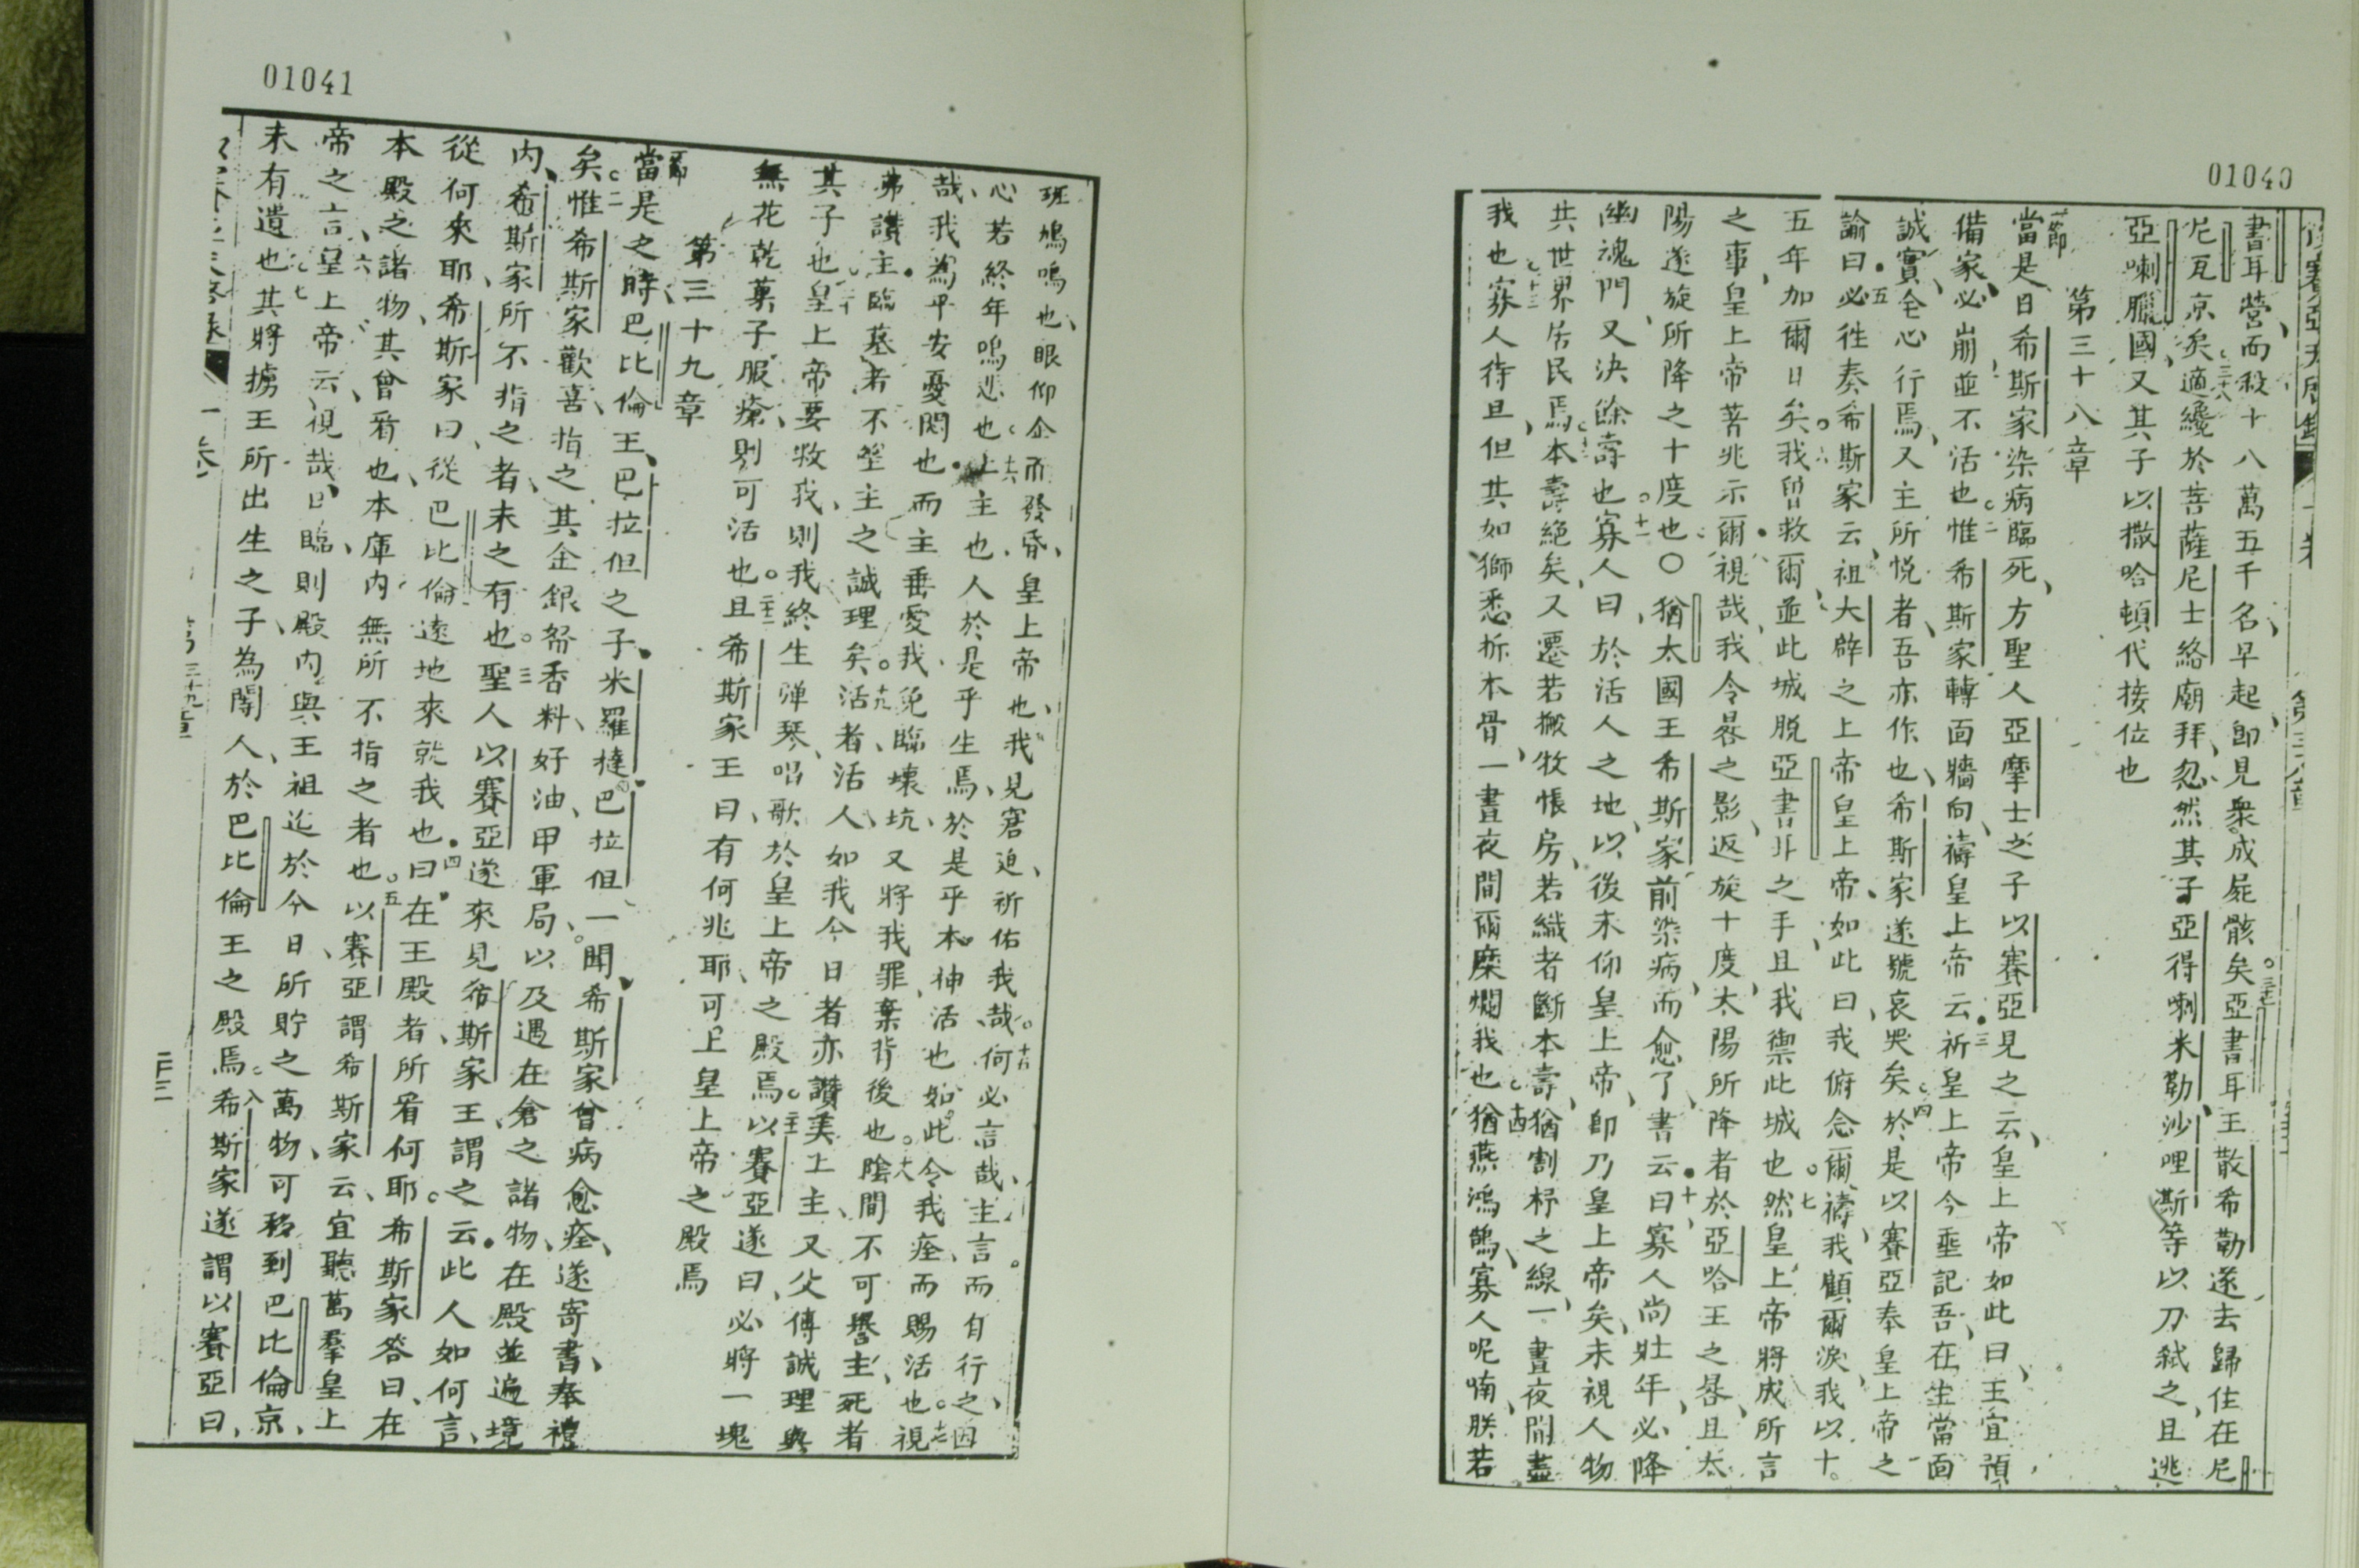 01040
書耳營而殺十八萬五千名早起即見衆成屍骸矣亞書耳王散希勒遂去歸住在尼
尼瓦京矣適纔於菩薩尼士絡廟拜忽然其子亞得喇米勒沙哩斯等以刀弒之且逃
亞喇臘國又其子以撒哈頓代接位也
第三十八章
一節
當是日希斯家染病臨死方聖人亞摩士之子以賽亞見之云皇上帝如此曰王宜預
備家必崩並不活也二惟希斯家轉面牆向禱皇上帝云三祈皇上帝今垂記吾在生當面
誠實全心行焉又主所悅者吾亦作也希斯家遂號哀哭矣四於是以賽亞奉皇上帝之
諭曰五必徃奏希斯家云祖大辟之上帝皇上帝如此曰我俯念爾禱我顧爾淚我以十
五年加爾日矣六我曾救爾並此城脱亞書耳之手且我禦此城也七然皇上帝將成所言
之事皇上帝菩兆示爾視哉我令晷之影返旋十度太陽所降者於亞哈王之晷且太
陽遂旋所降之十度也〇猶太國王希斯家前染病而愈了書云曰十寡人尚壯年必降
幽魂門又決餘壽也十一寡人曰於活人之地以後未仰皇上帝即乃皇上帝矣未視人物
共世界居民焉十二本壽絕矣又遷若搬牧悵房若織者斷本壽猶割杼之線一晝夜間盡
我也十三寡人待旦但其如獅悉拆本骨一晝夜間爾糜爛我也十四猶燕鴻鵠寡人呢喃朕若
01041
班鳩鳴也眼仰企而發昏皇上帝也我見窘迫祈佑我哉十五何必言哉主言而自行之因
心若終年嗚悲也十六上主也人於是乎生焉於是乎本神活也如此令我痊而賜活也十七視
哉我為平安憂悶也而主垂愛我免臨壞坑又將我罪棄背後也十八陰間不可譽主死者
弗讚主臨墓者不望主之誠理矣十九活者活人如我今日者亦讚美上主又父傳誠理與
其子也二十皇上帝要救我則我終生彈琴唱歌於皇上帝之殿焉二十一以賽亞遂曰必將一塊
無花乾菓子服瘡則可活也二十二且希斯家王曰有何兆耶可上皇上帝之殿焉
第三十九章
一節
當是之時巴比倫王巴拉但之子米羅撻巴拉但一聞希斯家曾病愈痊遂寄書奉禮
矣二惟希斯家歡喜指之其金銀帑香料好油甲軍局以及遇在倉之諸物在殿並遍境
內希斯家所不指之者未之有也三聖人以賽亞遂來見希斯家王謂之云此人如何言
從何來耶希斯家曰從巴比倫遠地來就我也四曰在王殿者所看何耶希斯家答曰在
本殿之諸物其曾看也本庫內無所不指之者也五以賽亞謂希斯家云宜聽萬羣皇上
帝之言六皇上帝云視哉日臨則殿內與王祖迄於今日所貯之萬物可移到巴比倫京
未有遺也七其將擄王所出生之子為閹人於巴比倫王之殿焉八希斯家遂謂以賽亞曰
第三十九章